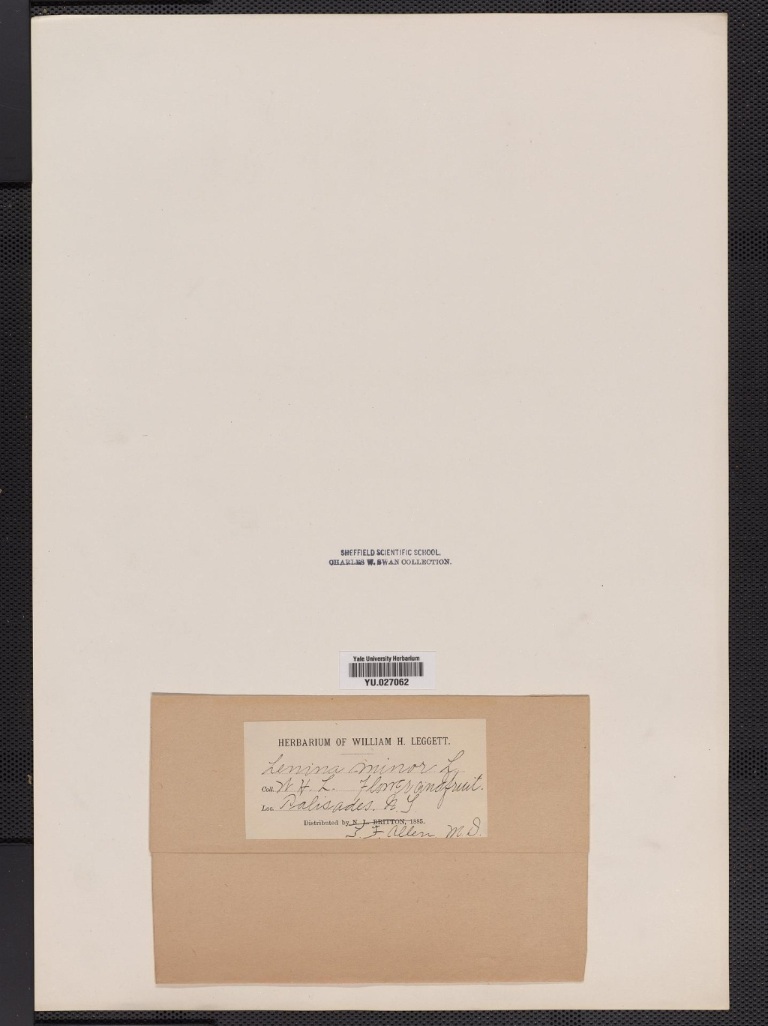 SHEFFIELD SCIENTIFIC SCHOOL.
CHARLES W. SWAN COLLECTION.
Yale University Herbarium
YU.027062
HERBARIUM OF WILLIAM H. LEGGETT.
Lemna minor L.
Coll. W. H. L. Flowr and fruit.
Loc. Palisades. N J
Distributed by N. L. BRITTON, 1885.
T. F. Allen M.D.